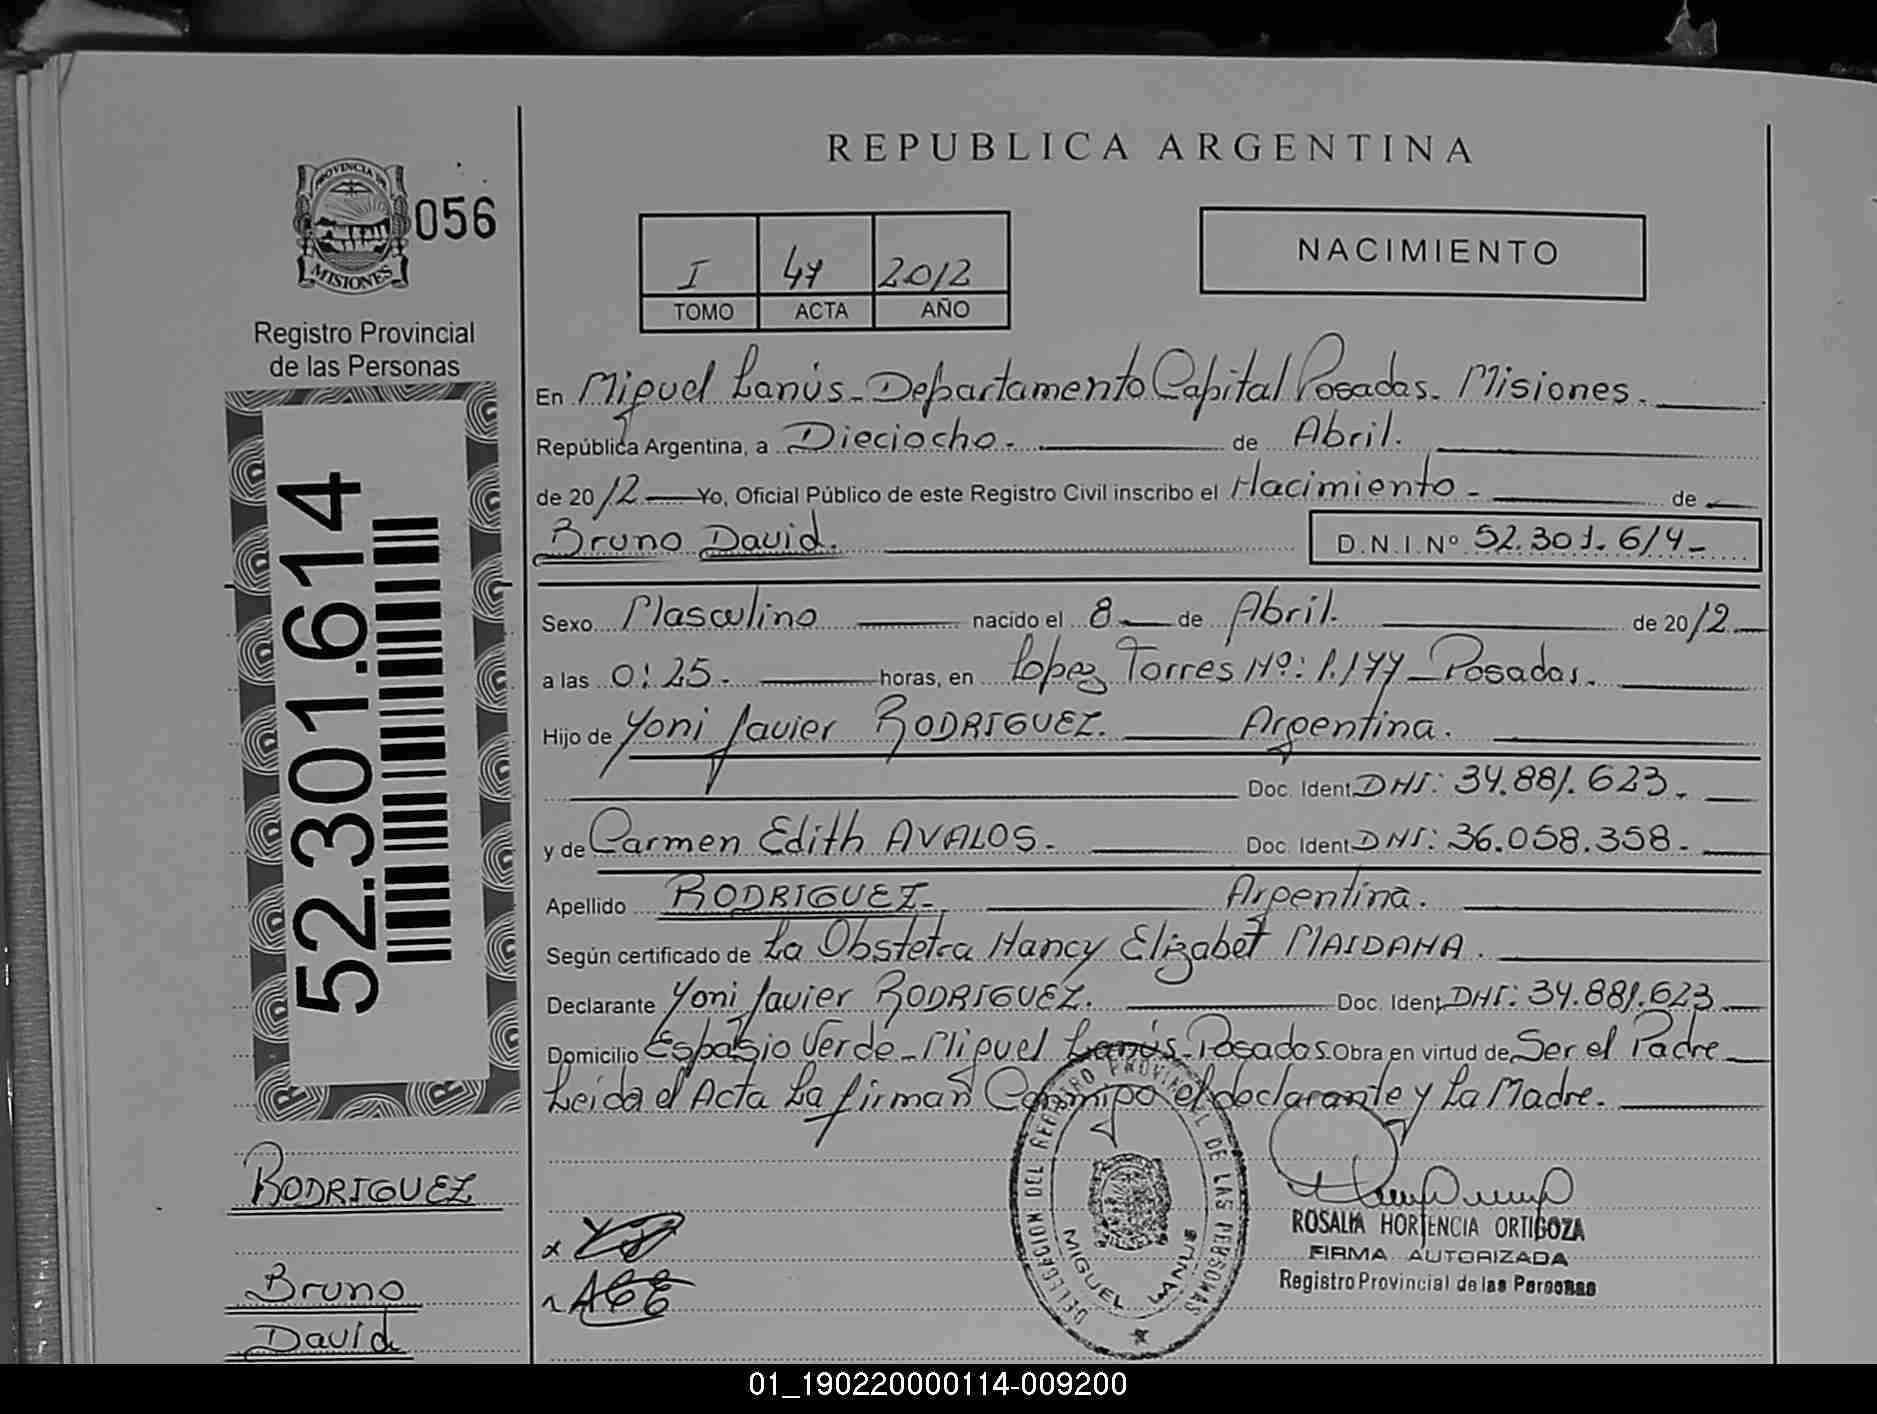 REPUBLICA ARGENTINA
PROVINCIA DE
MISIONES
056
Registro Provincial
de las Personas
I 47 2012
TOMO ACTA AÑO
NACIMIENTO
En Miguel Lanús - Departamento Capital Posadas - Misiones.
República Argentina, a Dieciocho. de Abril.
de 2012 Yo, Oficial Público de este Registro Civil inscribo el Nacimiento - de
Bruno David. D.N.I.Nº 52.301.614-
52.301.614
Sexo Masculino nacido el 8 de Abril. de 2012
a las 0:25. horas, en López Torres Nº: 1.177 - Posadas.
Hijo de Yoni Javier RODRIGUEZ. Argentina.
Doc. Ident DNI: 34.881.623.
y de Carmen Edith AVALOS. Doc. Ident DNI: 36.058.358.
Apellido RODRIGUEZ. Argentina.
Según certificado de La Obstetra Nancy Elizabet MAIDANA.
Declarante Yoni Javier RODRIGUEZ. Doc. Ident DNI: 34.881.623
Domicilio Espasio Verde - Miguel Lanús - Posadas. Obra en virtud de Ser el Padre
Leída el Acta La firman Conmigo el declarante y La Madre.
RODRIGUEZ
Bruno
David
DELEGACION DEL REGISTRO PROVINCIAL DE LAS PERSONAS
MIGUEL LANUS
ROSALIA HORTENCIA ORTIGOZA
FIRMA AUTORIZADA
Registro Provincial de las Personas
01_190220000114-009200